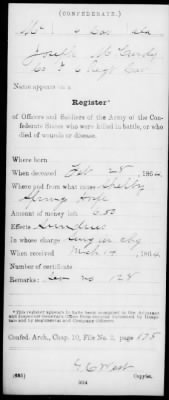 (CONFEDERATE.)
Mc 5 Car
Joseph McCurdy
Co F 5 Regt Cav
Name appears on a
Register*
of Officers and Soldiers of the Army of the Confederate States who were killed in battle, or who
died of wounds or disease.
Where born
When deceased Feb 28, 1864
Where and from what cause Shelby
Spring Hosp
Amount of money left 6.50
Effects Sundries
In whose charge Surg in chg
When received Mch 14, 1864
Number of certificate
Remarks: See no 128
*This register appears to have been compiled in the Adjutant
and Inspector General's Office from reports furnished by Hospitals and by regimental and Company Officers.
Confed. Arch., Chap. 10, File No. 2, page 175
(655)
Copyist.